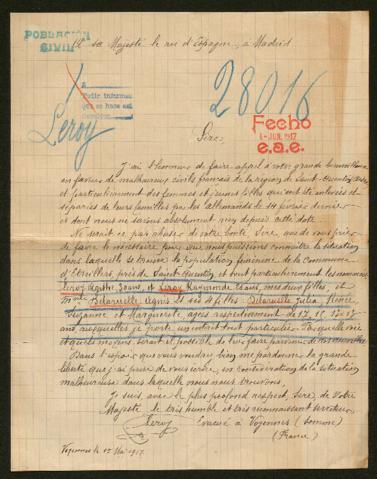 POBLACIÓN
CIVIL
A sa Majesté le roi d'Espagne, à Madrid
Leroy
28016
Fecho
4-JUN. 1917
e.a.e.
Sire,
J'ai l'honneur de faire appel à votre grande bienveillance
en faveur de malheureux civils français de la région de Saint-Quentin
et particulièrement des femmes et jeunes filles qui ont été enlevées et
séparées de leurs familles par les allemands le 14 février dernier
et dont nous ne savons absolument rien depuis cette date.
Ne serait-ce pas abuser de votre bonté, Sire, que de vous prier
de faire le nécessaire pour que nous puissions connaître la situation
dans laquelle se trouve la population féminine de la commune
d'Etreillers près de Saint-Quentin et tout particulièrement les nommées
Leroy Agathe, 20 ans, et Leroy Raymonde 12 ans, mes deux filles, et
Delarielle Agnès et ses 4 filles Delarielle Julia, Renée,
et Marguerite, âgées respectivement de 17,
ans, auxquelles je porte un intérêt tout particulier.
et quels moyens serait-il possible de leur faire parvenir de nos nouvelles
Dans l'espoir que vous voudrez bien me pardonner la grande
liberté que j'ai prise de vous écrire, en considération de la situation
malheureuse dans laquelle nous nous trouvons,
Je suis avec le plus profond respect, Sire, de Votre
Majesté le très humble et très reconnaissant serviteur.
Leroy Evacué à Voyennes (Somme)
(France)
Voyennes le 15 Mai 1917.